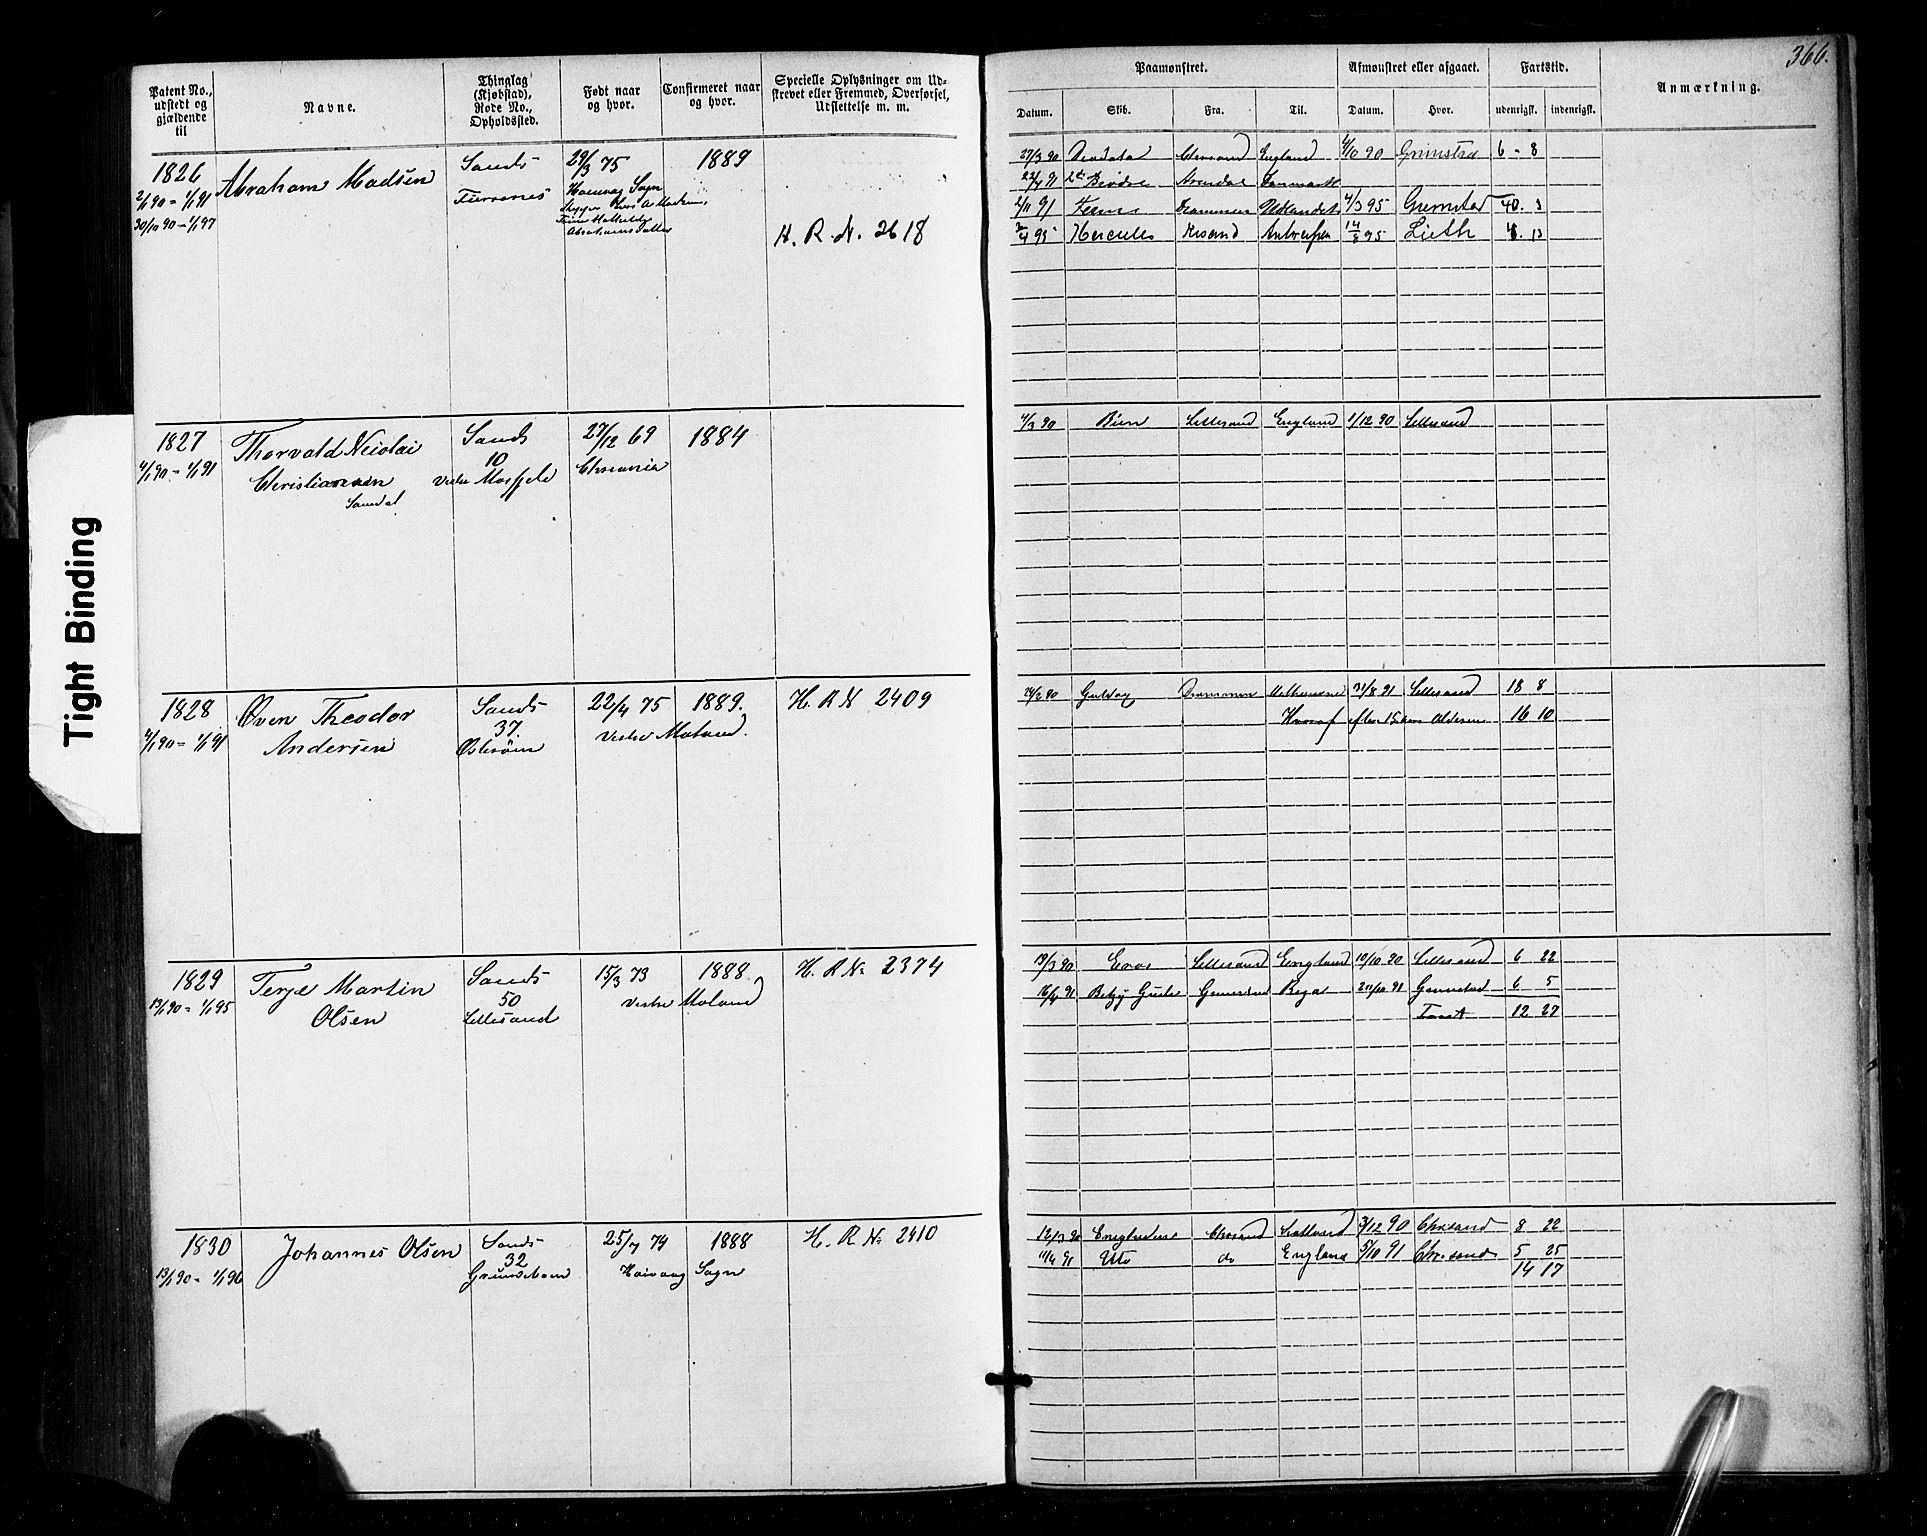 366.
Patent No., udstedt og gjældende til
Navne.
Thinglag (Kjøbstad), Rode No., Opholdssted.
Født naar og hvor.
Confirmeret naar og hvor.
Specielle Oplysninger om Udskrevet eller Fremmed, Overførsel, Udslettelse m. m.
Paamønstret.
Afmønstret eller afgaaet.
Fartstid.
Anmærkning.
Datum. Skib. Fra. Til. Datum. Hvor. udenrigsk. indenrigsk.
1826 Abraham Madsen Sands 29/3 75 1889
2/1 90 - 1/1 91
30/10 90 - 1/1 97
Høivaag Sogn
H. R. N. 2618
27/3 90 England 4/10 90 Grimstad 6 - 8
22/4 91 Arendal Danmark
2/11 91 Drammen Udlandet 4/3 95 Grimstad 40. 3
2/4 95 Hercules Krsand Antwerpen 14/8 95 Lieth 4. 13
1827 Thorvald Nicolai Sands 27/12 69 1884
4/1 90 - 1/1 91 Christiansen 10
Vestre
4/3 90 Lillesand England 1/12 90 Lillesand
1828 Øven Theodor Sands 22/4 75 1889. H. R N 2409
4/1 90 - 1/1 91 Andersen 37. Vestre Moland.
24/2 90 Drammen 31/8 91 Lillesand 18 8
Hvoraf efter 15 Aars Alderen 16 10
1829 Terje Martin Sands 15/3 73 1888 H. R No 2374
13/1 90 - 1/1 95 Olsen 50 Vestre Moland
Lillesand
19/3 90 Eros Lillesand England 10/10 90 Lillesand 6 22
16/4 91 Betzy Gude Grimstad Riga 20/10 91 Grimstad 6 5
12 27
1830 Johannes Olsen Sands 25/7 74 1888 H. R No 2410
13/1 90 - 1/1 96 32 Høivaag Sogn
12/3 90 Chrsand 3/12 90 Chrsand 8 22
11/4 91 do England 5/10 91 Chr.sand 5 25
14 17
Tight Binding